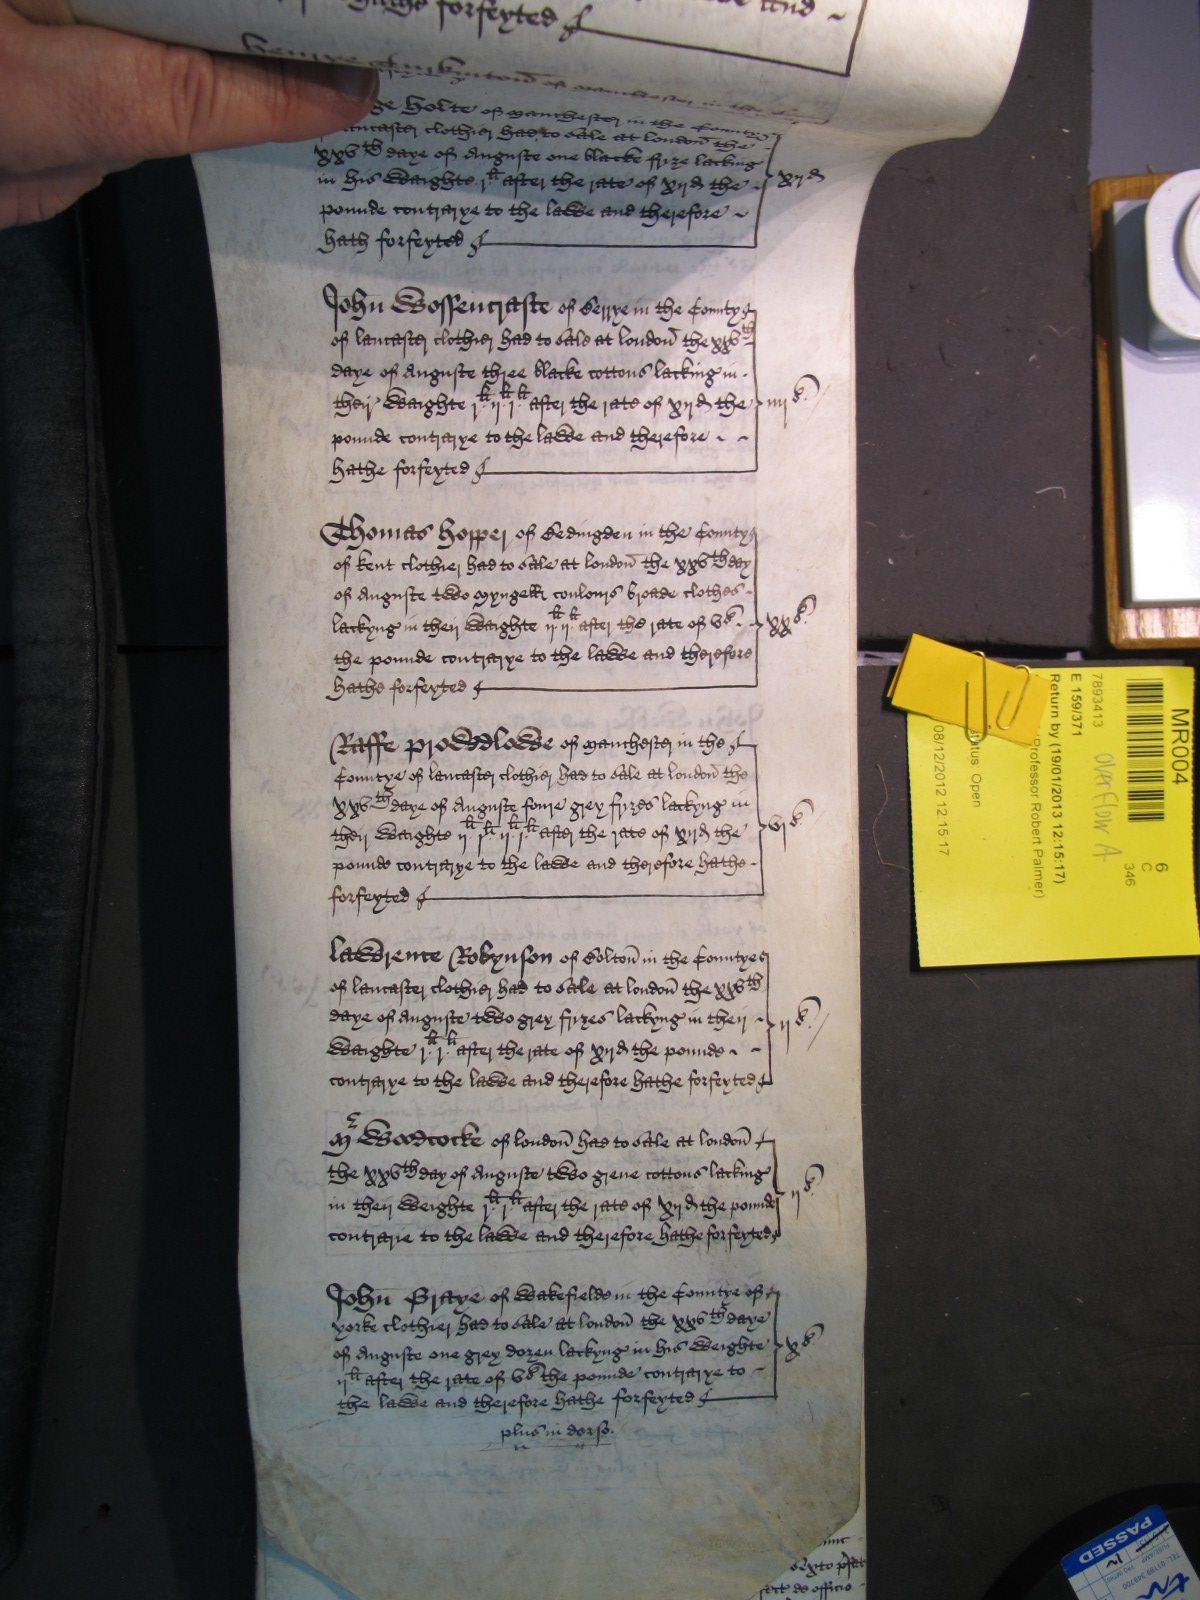 hathe forfeyted
Holte of Manchester in the Countye
lancaster clothier had to sale at london the
xxvth daye of Auguste one blacke fryze lacking
in his Waighte j li after the rate of xij d the
pounde contrarye to the lawe and therefore
hath forfeyted
xij d
John Wossencrafte of Berrye in the Countye
of lancaster clothier had to sale at london the xxvth
daye of Auguste three blacke cottons lacking in
their Waighte j li ij li j li after the rate of xij d the
pounde contrarye to the lawe and therefore
hathe forfeyted
iiij s
Thomas Hopper of Bedingden in the Countye
of kent clothier had to sale at london the xxvth day
of Auguste two Myngell coulours broade clothes
lackyng in their Waighte ij li ij li after the rate of v s
the pounde contrarye to the lawe and therefore
hathe forfeyted
xx s
Raffe prowdlowe of Manchester in the
Countye of lancaster clothier had to sale at london the
xxvth daye of Auguste foure grey fryzes lackyng in
their Waighte ij li j li ij li j li after the rate of xij d the
pounde contrarye to the lawe and therefore hathe
forfeyted
vj s
lawrence Robynson of Bolton in the Countye
of lancaster clothier had to sale at london the xxvth
daye of Auguste two grey fryzes lackyng in their
Waighte j li j li after the rate of xij d the pounde
contrarye to the lawe and therefore hathe forfeyted
ij s
Mr Woodcocke of london had to sale at london
the xxvth day of Auguste two grene cottons lacking
in their Weighte j li j li after the rate of xij d the pounde
contrarie to the lawe and therefore hathe forfeyted
ij s
John Graye of Wakefielde in the Countye of
yorke clothier had to sale at london the xxvth daye
of Auguste one grey dozen lackyng in his Weighte
ij li after the rate of v s the pounde contrarye to
the lawe and therefore hathe forfeyted
x s
plus in dorso.
MR004
6
C
346
overflow A
7893413
E 159/371
Return by (19/01/2013 12:15:17)
Professor Robert Palmer)
Status Open
08/12/2012 12:15:17
PASSED